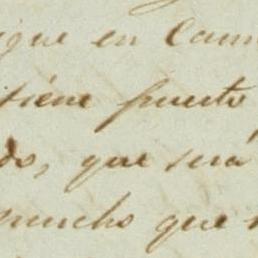 sigue en Cam
tiene puerto
do, que será
mucho que